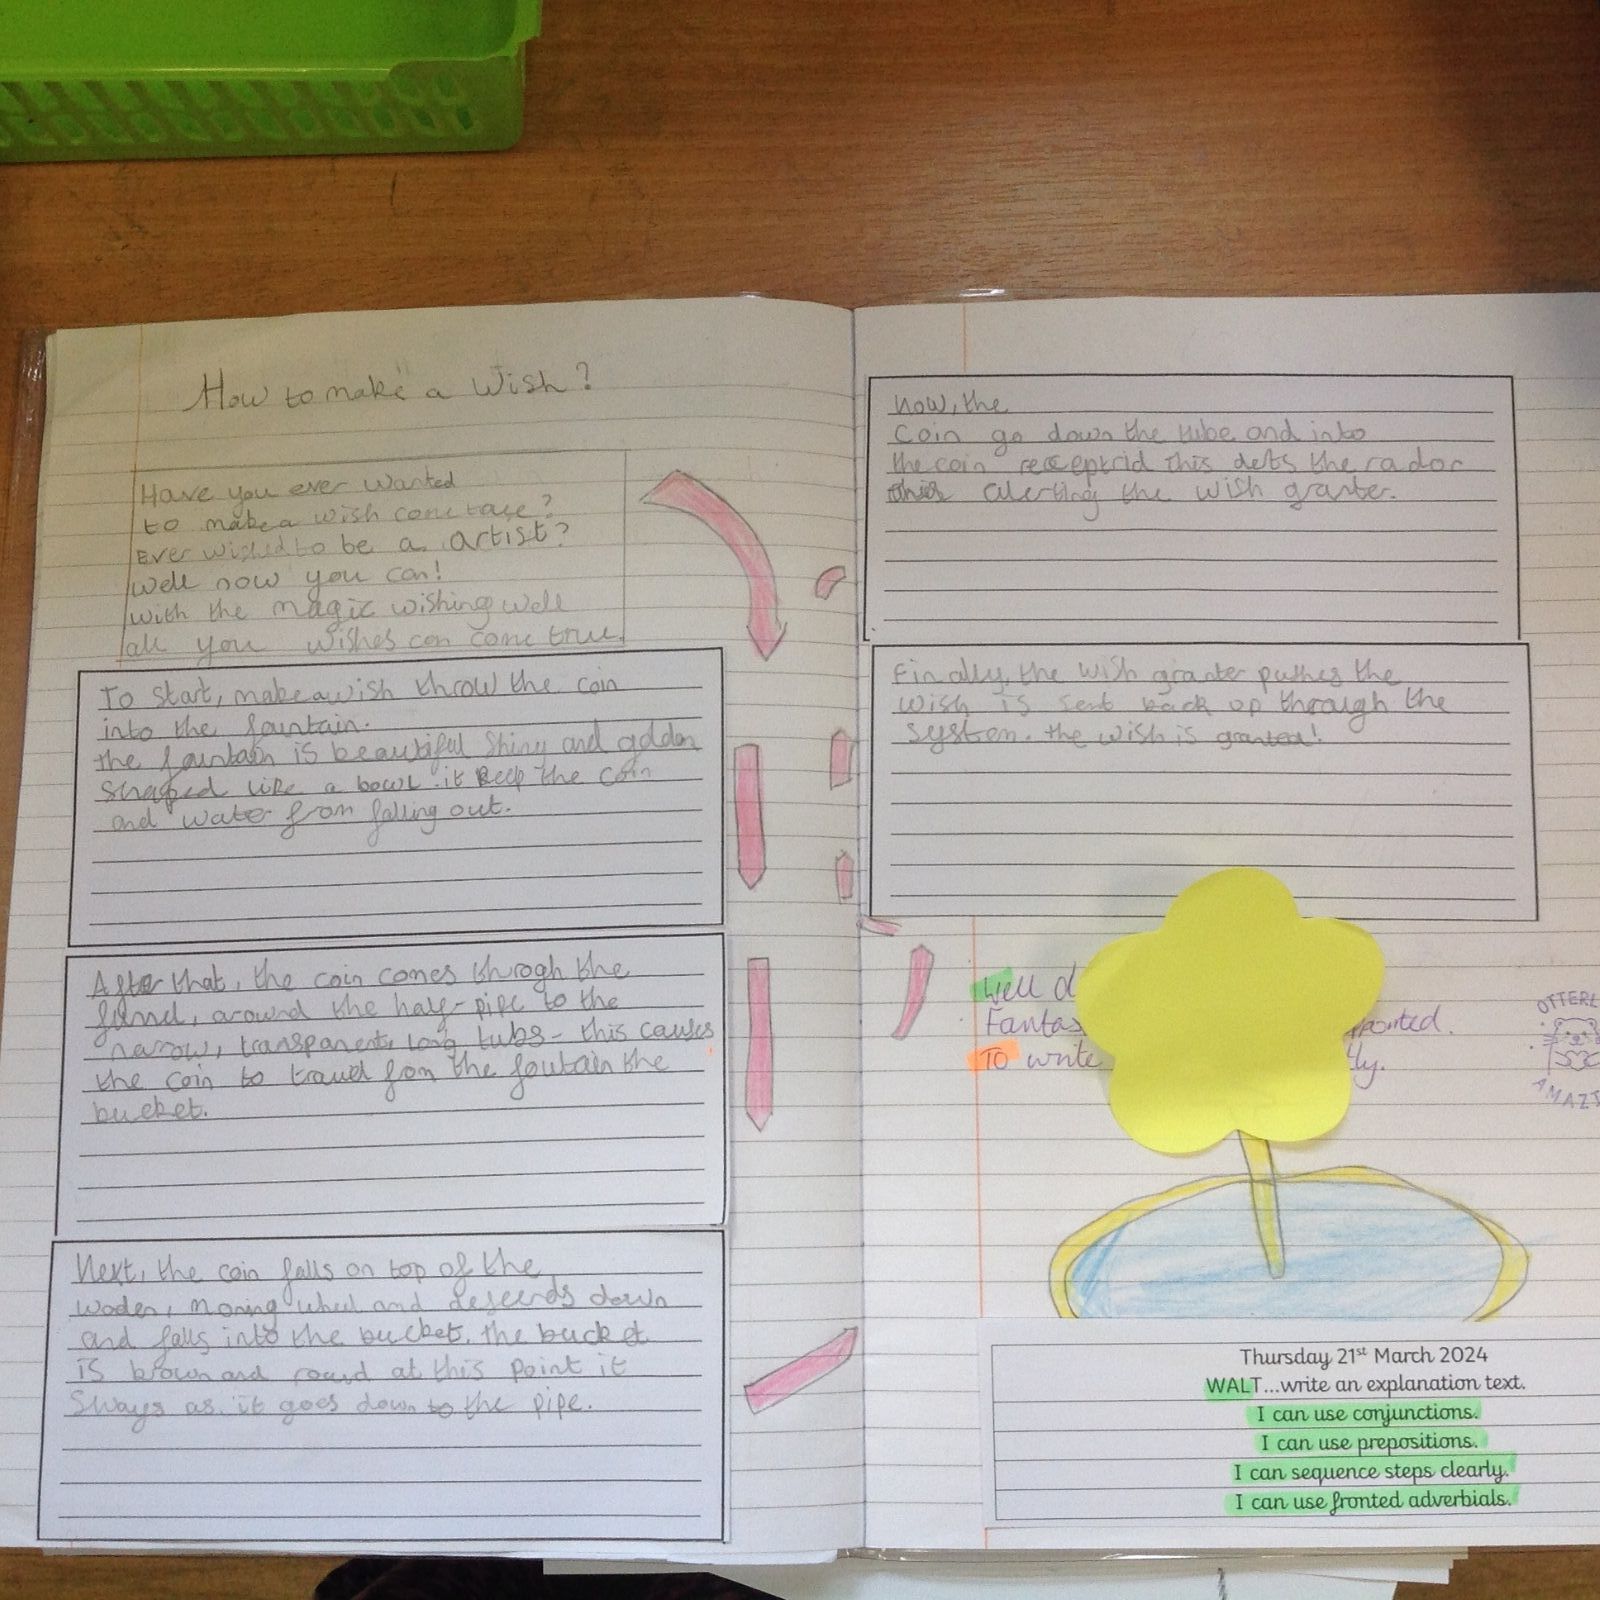 How to make a Wish?
Have you ever wanted
to make a wish come true?
Ever wished to be a artist?
well now you can!
with the magic wishing well
all you wishes can come true.
To start, make a wish throw the coin
into the fountain.
the fountain is beautiful shiny and goldon
shaped like a bowl it keep the coin
and water from falling out.
After that, the coin comes throgh the
funnel, around the half-pipe to the
narrow, transparent, long tubs - this causes
the coin to travel from the foutain the
bucket.
Next, the coin falls on top of the
woden, moving wheel and descends down
and falls into the bucket. the bucket
is brown and round at this point it
sways as it goes down to the pipe.
now, the
coin go down the tube and into
the coin this the rador
alerting the wish granter.
Finally, the wish granter pushes the
wish is sent back up through the
system. the wish is granted!
Well d
Fantas
To write
OTTERL
AMAZI
Thursday 21st March 2024
WALT...write an explanation text.
I can use conjunctions.
I can use prepositions.
I can sequence steps clearly.
I can use fronted adverbials.